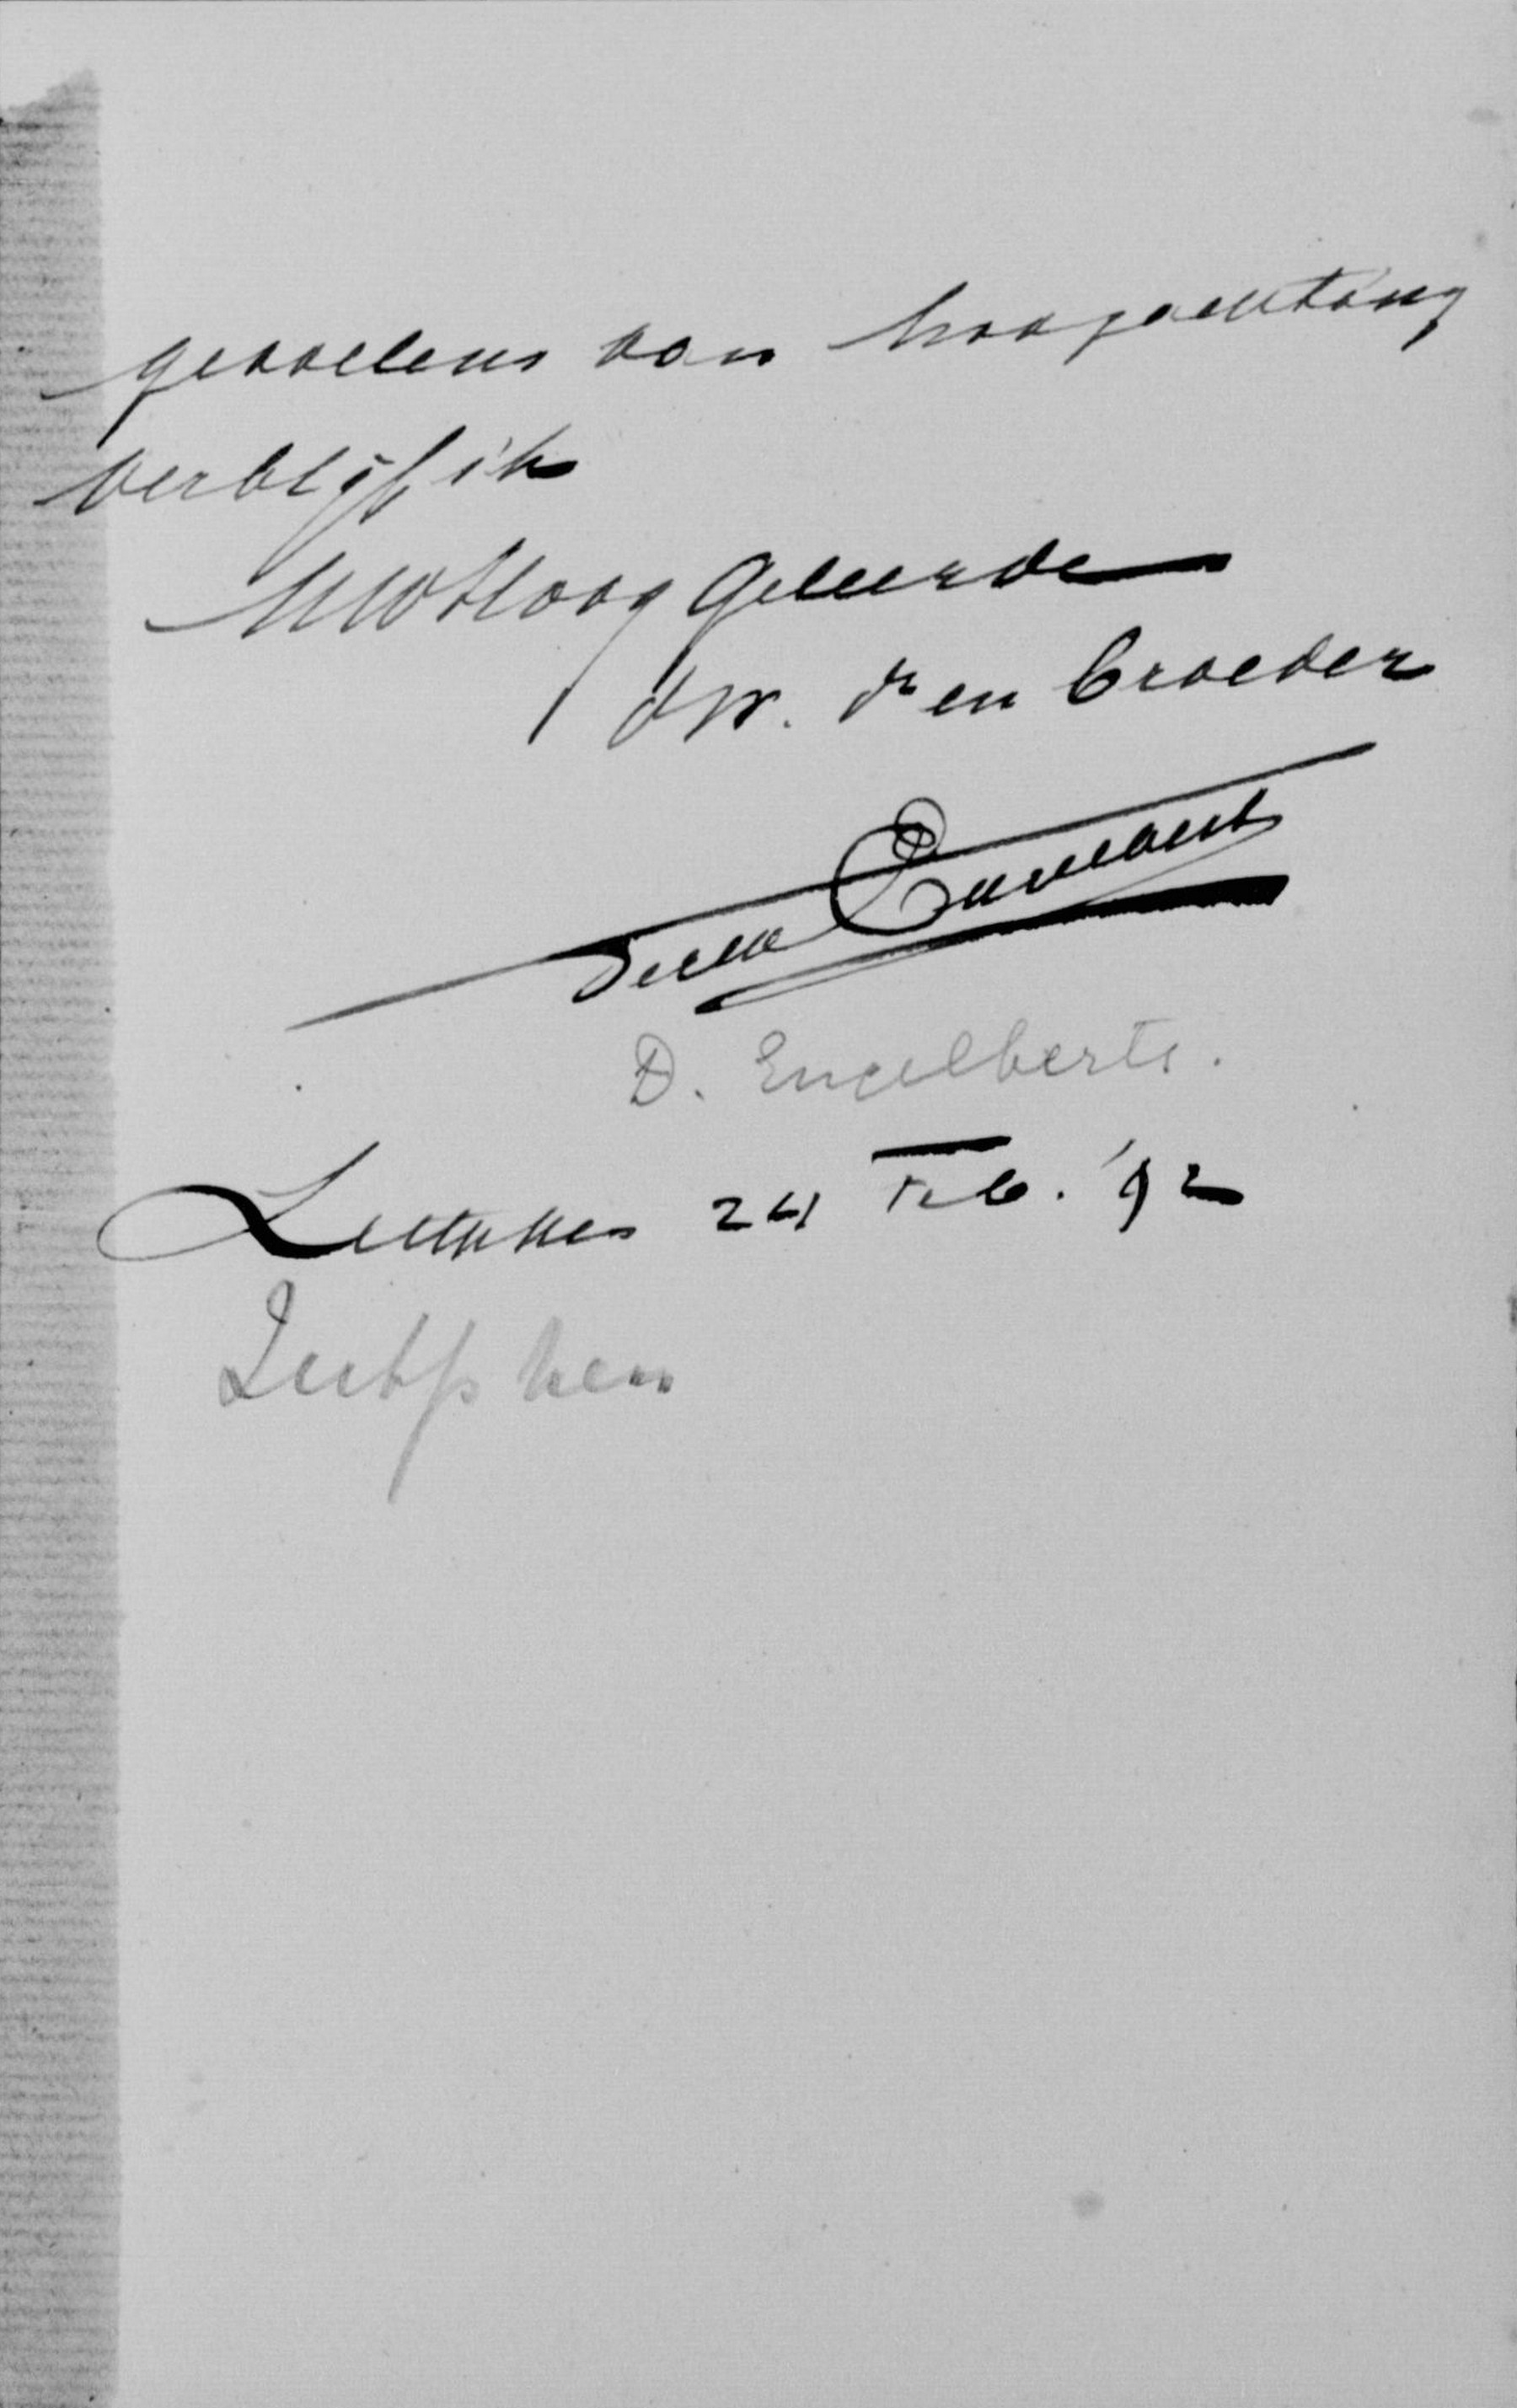 gevoelens van hoogachting
verblijf ik
UWHoog Geleerde
dw. dr en broeder
Engelberts
D. Engelberts.
Zutphen 24 Feb. '92
Zutphen